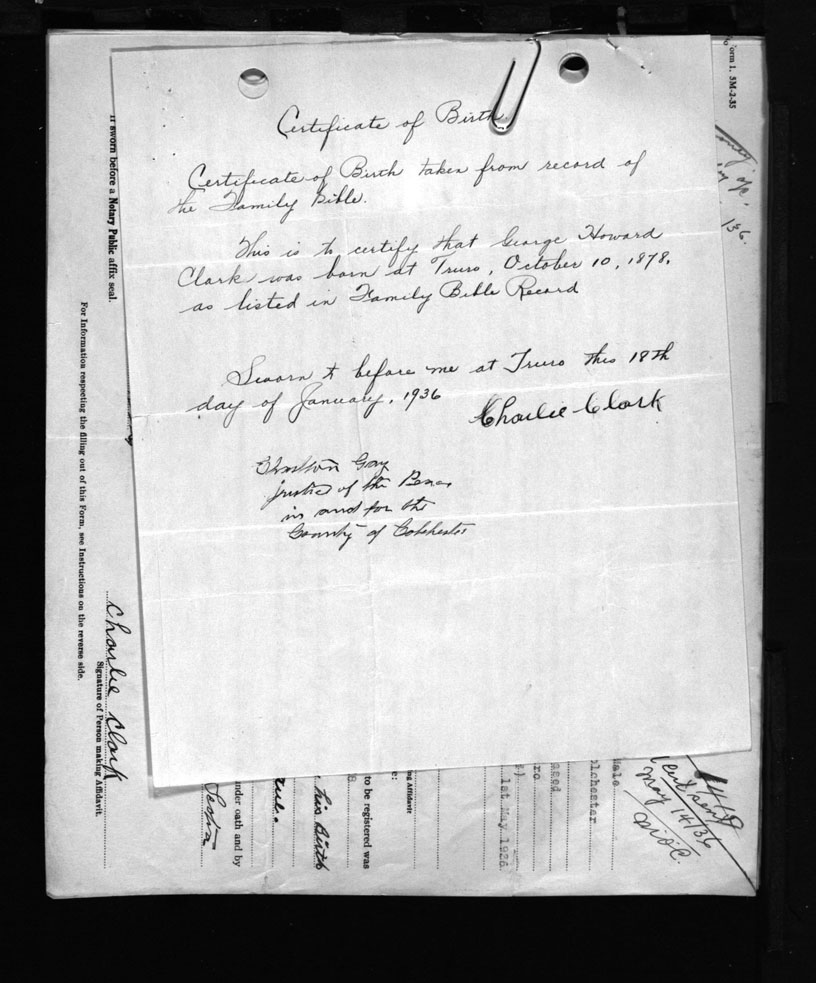 Certificate of Birth
Certificate of Birth taken from record of
the Family Bible.
This is to certify that George Howard
Clark was born at Truro, October 10, 1878,
as listed in Family Bible Record
Sworn to before me at Truro this 18th
day of January, 1936
Charlie Clark
Gay
Justice of the Peace
in and for the
County of Colchester
Form 1. 5M-2-35
136.
If sworn before a Notary Public affix seal.
For Information respecting the filling out of this Form, see Instructions on the reverse side.
Charlie Clark
Signature of Person making Affidavit.
under oath and by
his Birth
to be registered was
ing Affidavit
1st May 1936
lchester
Cert sent
May 14/36